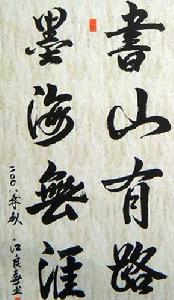 書山有路
墨海無涯
二〇〇八年秋
江良喜书